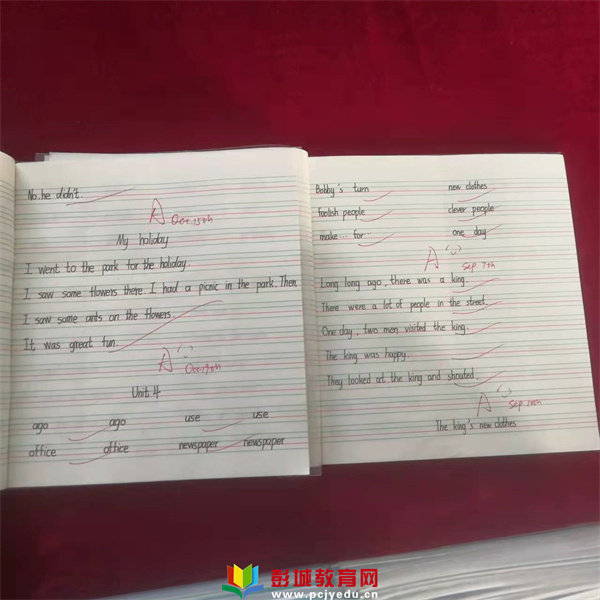 No. he didn't.
A Oct.15th
My holiday
I went to the park for the holiday.
I saw some flowers there I had a picnic in the park. Then
I saw some ants on the flowers.
It was great fun.
A
Unit 4
ago ago use use
office office newspaper newspaper
Bobby's turn new clothes
foolish people clever people
make … for … one day
A Sep. 7th
Long long ago, there was a king.
There were a lot of people in the street.
One day, two men visited the king.
The king was happy.
They looked at the king and shouted.
A Sep.
The king's new clothes
彭城教育网
www.pcjyedu.cn